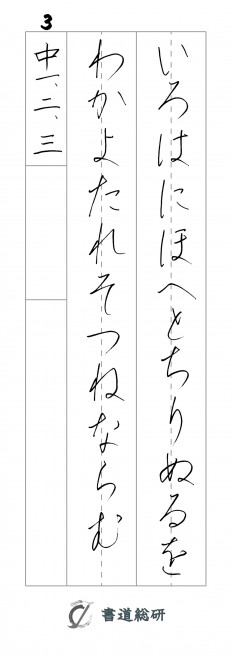 3
いろはにほへとちりぬるを
わかよたれそつねならむ
中一、二、三
書道総研